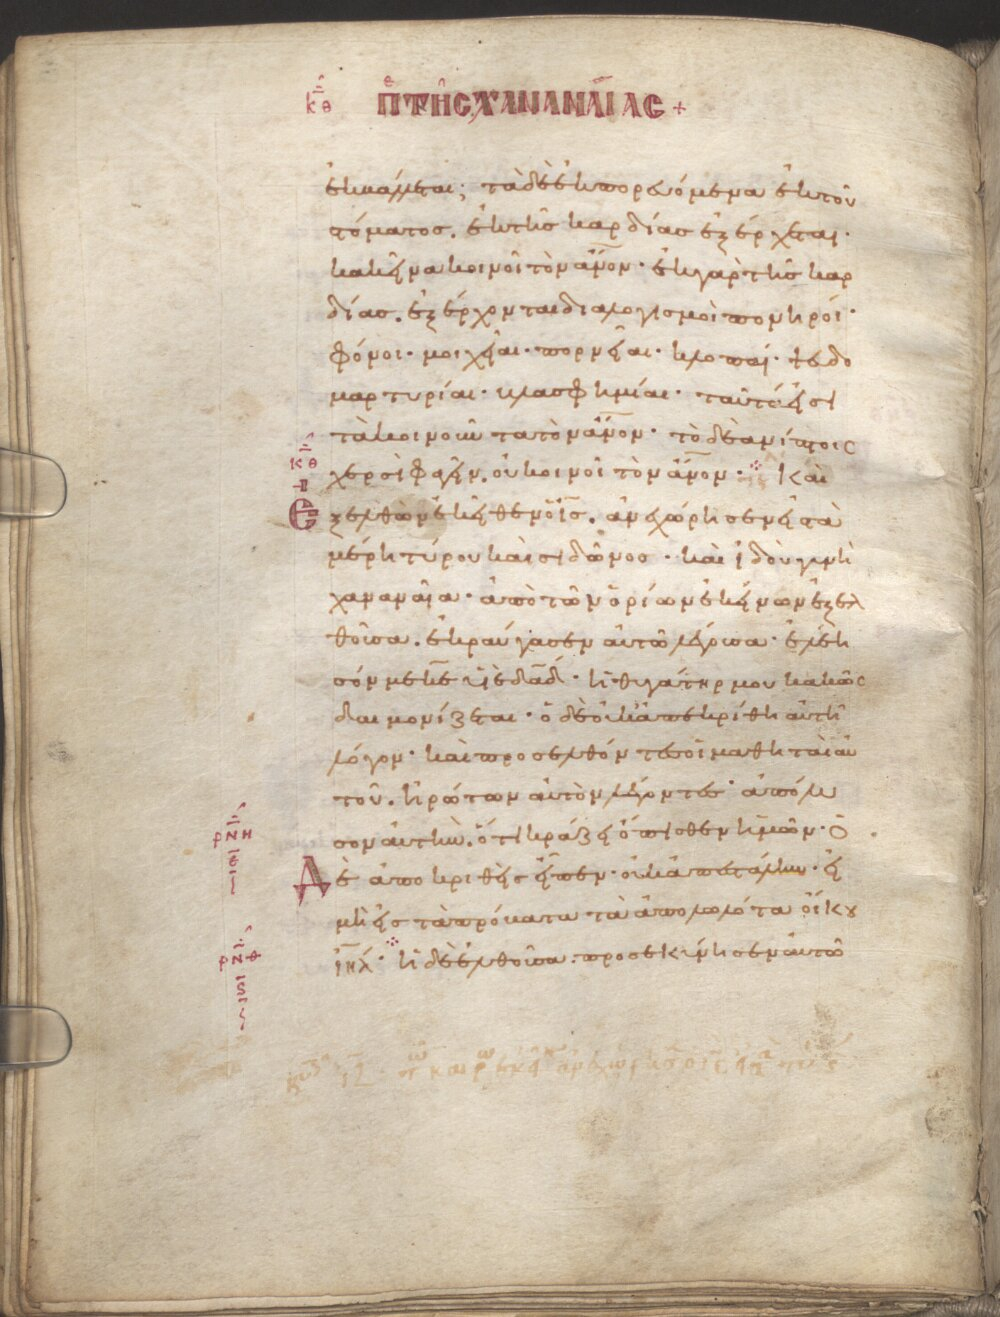 κθ πε τῆς χαναναίας +
ἐκβάλλεται; τὰ δὲ ἐκπορευόμενα ἐκ τοῦ σ
τόματος. ἐκ τῆς καρδίας ἐξέρχεται·
κακεῖνα κοινοῖ τὸν ἄνον· ἐκ γὰρ τῆς καρ
δίας. ἐξέρχονται διαλογισμοὶ πονηροί·
φόνοι· μοιχεῖαι· πορνεῖαι· κλοπαί· ψευδο
μαρτυρίαι· βλασφημίαι· ταῦτά εἰσι
τὰ κοινοῦντα τὸν ἄνον· τὸ δὲ ἀνίπτοις
κθ
χερσὶ φαγεῖν. οὐ κοινοῖ τὸν ἄνον· Καὶ
Ἐξελθὼν ἐκεῖθεν ὁ ις. ἀνεχώρησεν εἰς τὰ
μέρη τύρου καὶ σιδῶνος· καὶ ἰδοὺ γυνὴ
χαναναία· ἀπὸ τῶν ὁρίων ἐκείνων ἐξελ
θοῦσα. ἐκραύγασεν αὐτῶ λέγουσα· ἐλέη
σόν με κε υἱὲ δαδ· ἡ θυγάτηρ μου κακῶς
δαιμονίζεται· ὁ δὲ οὐκ ἀπεκρίθη αὐτῆ
λόγον· καὶ προσελθόντες οἱ μαθηταὶ αὐ
τοῦ. ἠρώτων αὐτὸν λέγοντες· ἀπόλυ
ρνη
σον αὐτὴν. ὅτι κράζει ὄπισθεν ἡμῶν· Ὁ
Δὲ ἀποκριθεὶς εἶπεν· οὐκ ἀπεστάλην· εἰ
μὴ εἰς τὰ πρόβατα τὰ ἀπολωλότα οἴκου
ιηλ· ἡ δὲ ἐλθοῦσα. προσεκύνησεν αὐτῶ